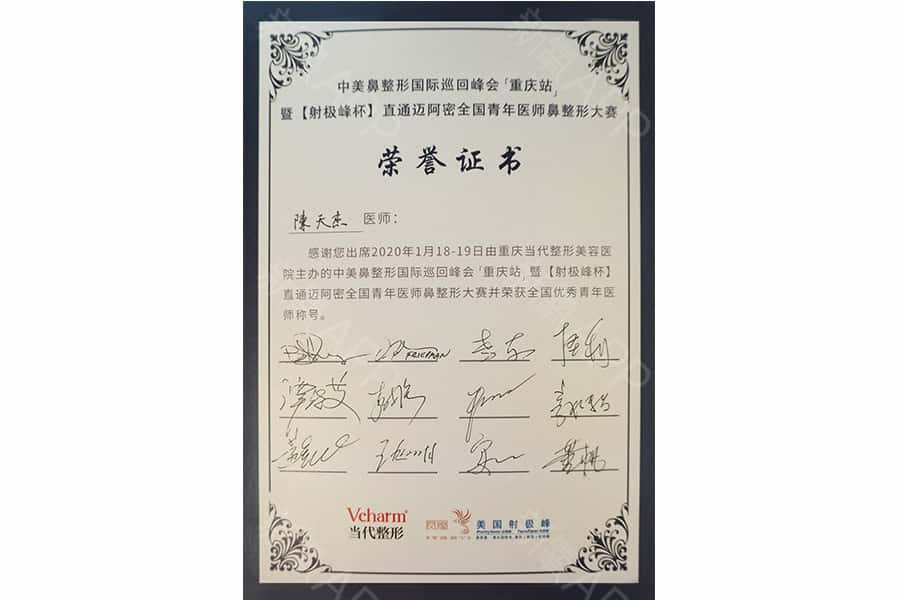 中美鼻整形国际巡回峰会「重庆站」
暨【射极峰杯】直通迈阿密全国青年医师鼻整形大赛
荣誉证书
陳天杰 医师：
感谢您出席2020年1月18-19日由重庆当代整形美容医
院主办的中美鼻整形国际巡回峰会「重庆站」暨【射极峰杯】
直通迈阿密全国青年医师鼻整形大赛并荣获全国优秀青年医
师称号。
Vcharm®
当代整形
美国射极峰